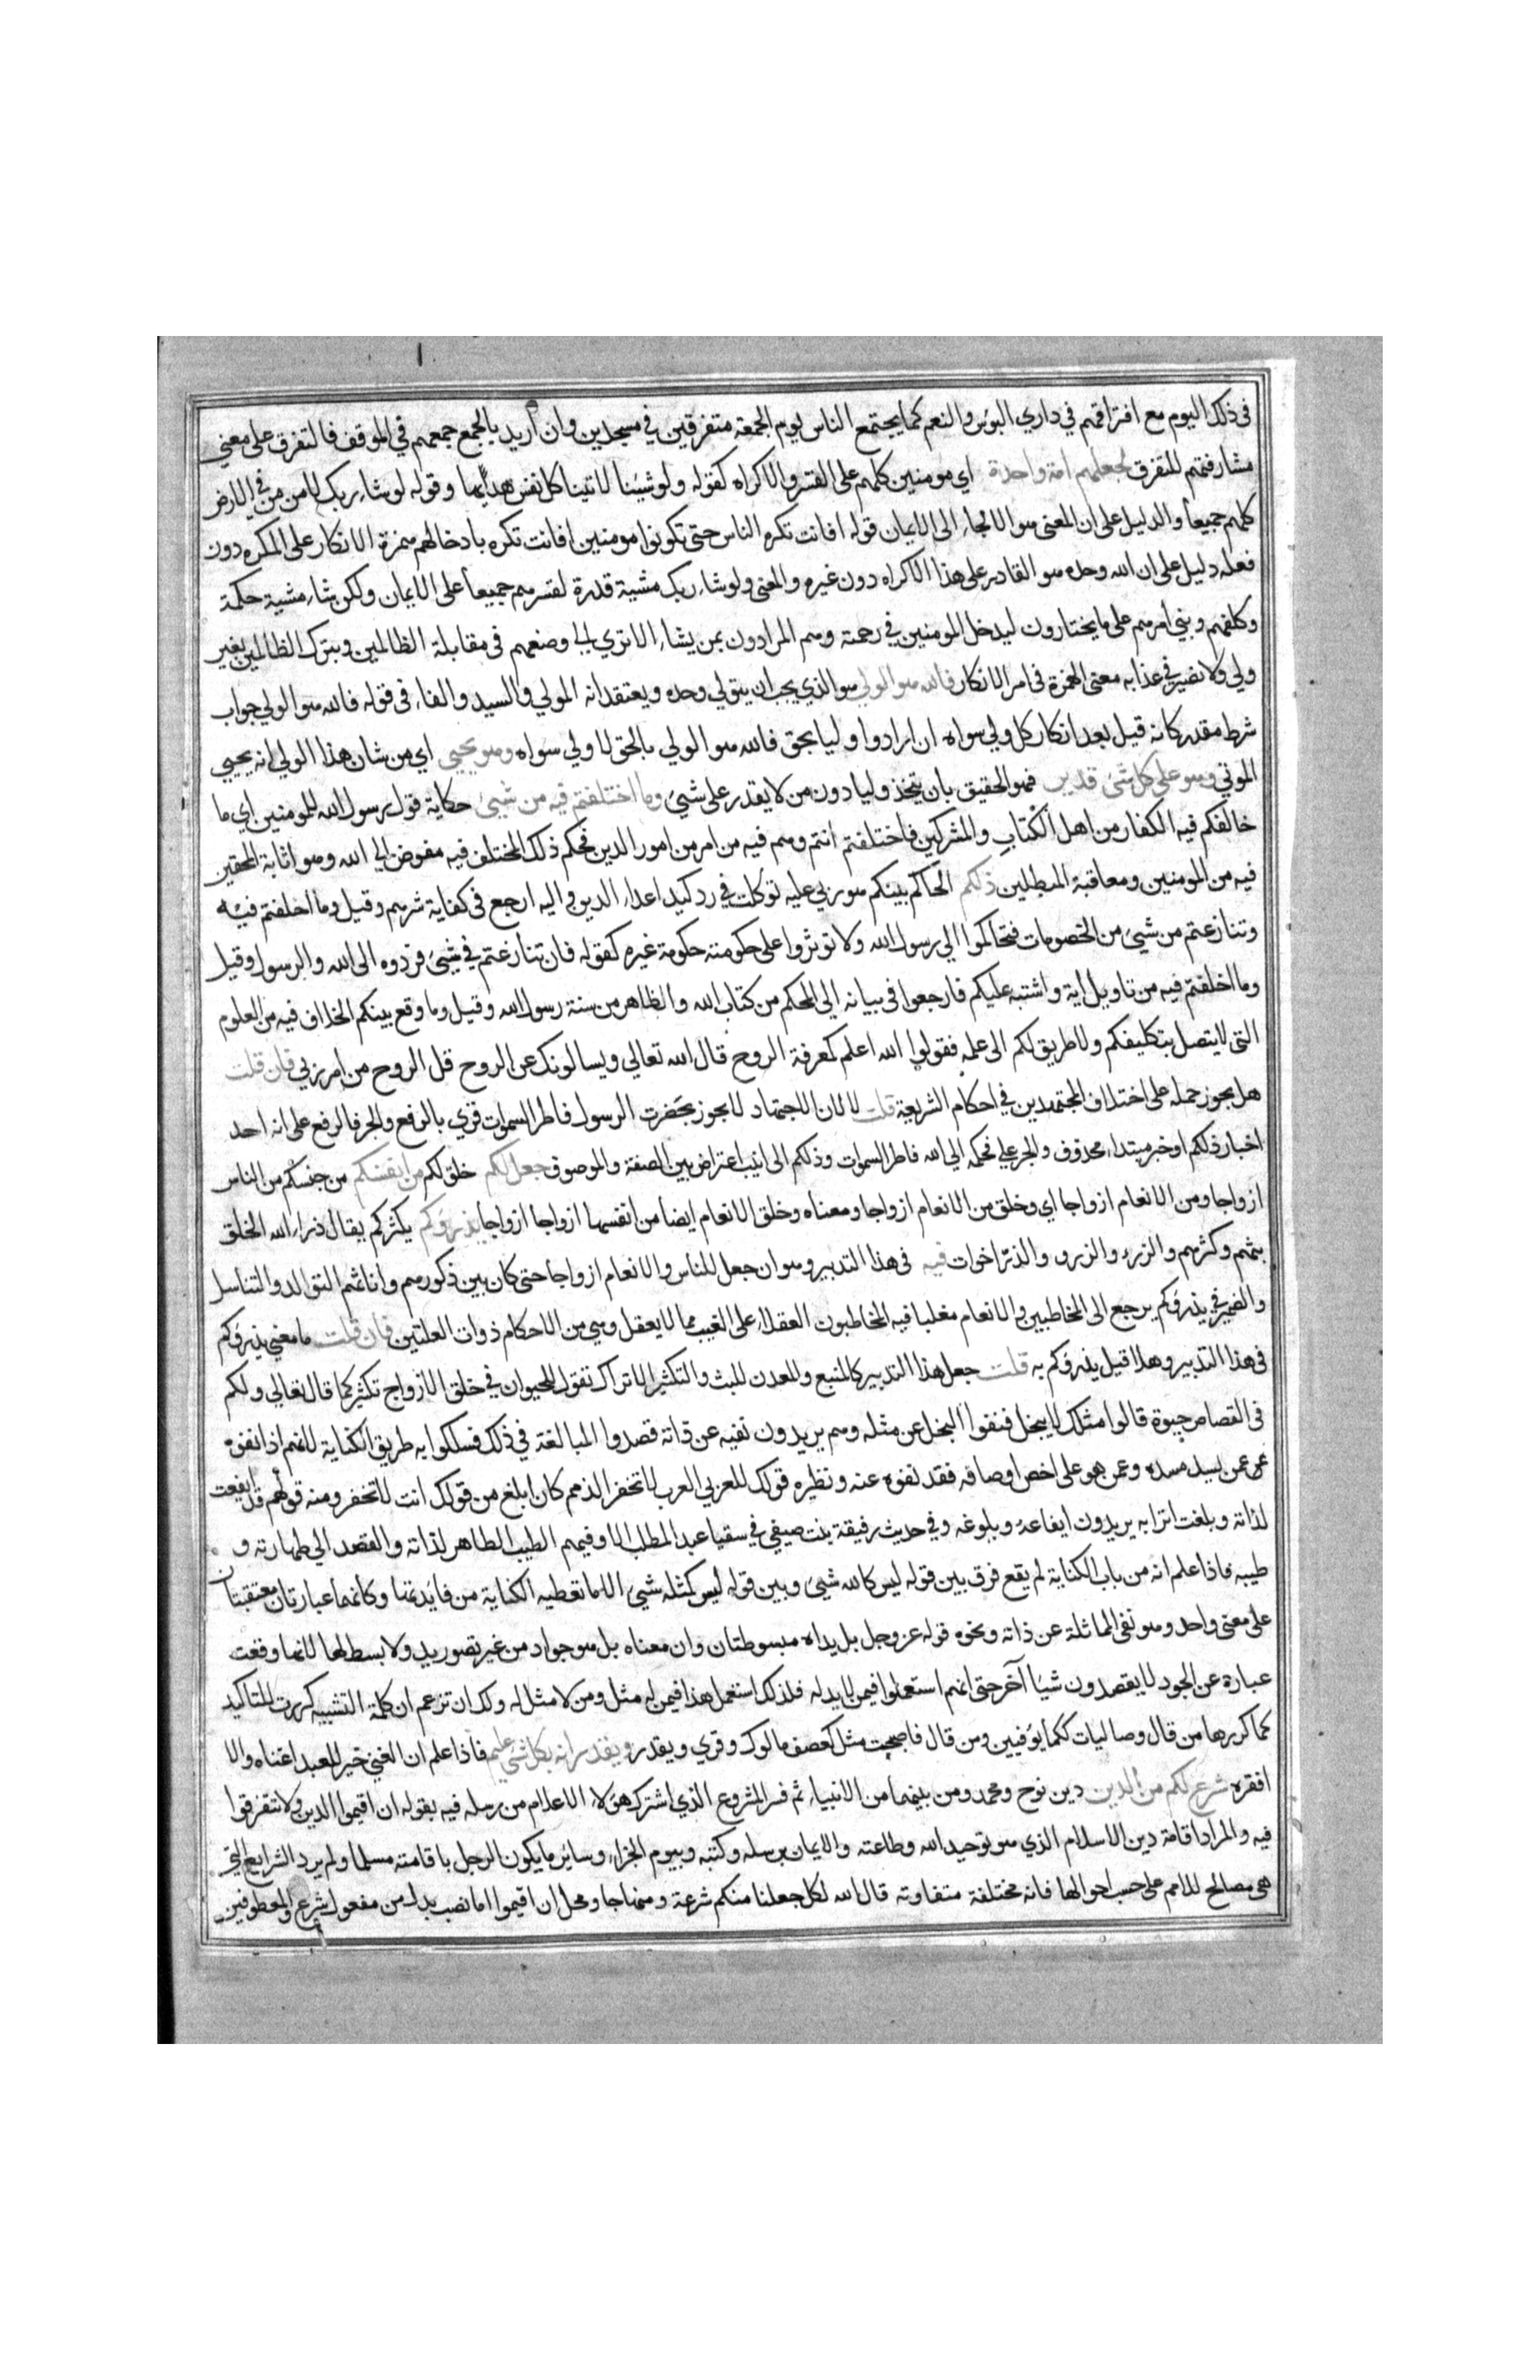 فى ذلك اليوم مع افتراقهم في داري البوس والنعم كما يجتمع الناس يوم الجمعة متفرقين في مسجدين وان أريد بالجمع جمعهم في الموقف فالتفرق على معنى
مشارفتهم للتفرق لجعلهم امة واحدة اي مومنين كلهم على القسر والاكراه كقوله ولو شيئنا لاتينا كل نفس هداها وقوله لو شاء ربك لامن من في الارض
كلهم جميعا والدليل على ان المعنى هو الالجاء الى الايمان قوله افانت تكره الناس حتى تكونوا مومنين افانت تكره بادخالهم همزة الانكار على المكره دون
فعله دليل على ان الله وحده هو القادر على هذا الاكراه دون غيره والمعنى ولو شاء ربك مشية قدرة لقسرهم جميعا على الايمان ولكن شاء مشية حكمة
وكلفهم وبنى امرهم على ما يختارون ليدخل المومنين في رحمة وهم المرادون بمن يشاء الا تري الي وضعهم فى مقابلة الظالمين ويترك الظالمين بغير
ولي ولا نصير في عذابه معنى الهمزة فى امر الانكار فالله هو الولي هو الذي يجب ان يتولي وحده ويعتقد انه المولي والسيد والفاء فى قوله فالله هو الولي جواب
شرط مقدر كانه قيل بعد انكار كل ولي سواه ان ارادوا وليا بحق فالله هو الولي بالحق لا ولي سواه وهو يحيي اي من شان هذا الولي انه يحيي
الموتي وهو على كل شئ قدير فهو الحقيق بان يتخذ وليا دون من لا يقدر على شيئ وما اختلفتم فيه من شيئ حكاية قول رسول الله للمومنين اي ما
خالفكم فيه الكفار من اهل الكتاب والمشركين فاختلفتم انتم وهم فيه من امر من امور الدين فحكم ذلك المختلف فيه مفوض الي الله وهو اثابة المحقين
فيه من المومنين ومعاقبة المبطلين ذلكم الحاكم بينكم هو ربي عليه توكلت في رد كيد اعداء الدين واليه ارجع فى كفاية شرهم وقيل وما اختلفتم فيه
وتنازعتم من شيئ من الخصومات فتحاكموا الي رسول الله ولا توثروا على حكومته حكومة غيره كقوله فان تنازعتم في شيئ فردوه الى الله والرسول وقيل
وما اختلفتم فيه من تاويل اية واشتبه عليكم فارجعوا فى بيانه الى المحكم من كتاب الله والظاهر من سنة رسول الله وقيل وما وقع بينكم الخلاف فيه من العلوم
التى لا يتصل بتكليفكم ولا طريق لكم الى علمه فقولوا الله اعلم كمعرفة الروح قال الله تعالي ويسالونك عن الروح قل الروح من امر ربي فان قلت
هل يجوز حمله على اختلاف المجتهدين في احكام الشريعة قلت لا لان الاجتهاد لا يجوز بحضرت الرسول فاطر السموات قري بالرفع والجر فالرفع على انه احد
اخبار ذلكم او خبر مبتداء محذوف والجر على فحكمه الي الله فاطر السموات وذلكم الى انيب اعتراض بين الصفة والموصوف جعل لكم خلق لكم من انفسكم من جنسكم من الناس
ازواجا ومن الانعام ازواجا اي وخلق من الانعام ازواجا ومعناه وخلق الانعام ايضا من انفسها ازواجا ازواجا يذروكم يكثركم يقال ذراء الله الخلق
بثهم وكثرهم والزرء والزرو والذر اخوات فيه فى هذا التدبير وهو ان جعل للناس والانعام ازواجا حتى كان بين ذكورهم واناثهم التوالد والتناسل
والضمير في يذروكم يرجع الى المخاطبين والانعام مغلبا فيه المخاطبون العقلاء على الغيب مما لا يعقل وهي من الاحكام ذوات العلتين فان قلت ما معني يذروكم
فى هذا التدبير وهلا قيل يذروكم به قلت جعل هذا التدبير كالمنبع والمعدن للبث والتكثير الا تراك تقول للحيوان في خلق الازواج تكثير كما قال تعالي ولكم
فى القصاص حيوة قالوا مثلك لا يبخل فنفوا البخل عن مثله وهم يريدون نفيه عن ذاته قصدوا المبالغة في ذلك فسلكوا به طريق الكناية لانهم اذا نفوه
عمن يسد مسده وعمن هو على اخص اوصافه فقد نفوه عنه ونظيره قولك للعربي العرب لا تخفر الذمم كان ابلغ من قولك انت لا تخفر ومنه قولهم قد ايفعت
لذاته وبلغت اترابه يريدون ايفاعه وبلوغه وفي حديث رقيقة بنت صيفي في سقيا عبد المطلب الا وفيهم الطيب الطاهر لذاته والقصد الي طهارته و
طيبه فاذا علم انه من باب الكناية لم يقع فرق بين قوله ليس كالله شيئ وبين قوله ليس كمثله شيئ الا ما تعطيه الكناية من فايدتها وكانهما عبارتان معتقبتان
على معنى واحد وهو نفى المماثلة عن ذاته ونحوه قوله عز وجل بل يداه مبسوطتان وان معناه بل هو جواد من غير تصور يد ولا بسط لها لانها وقعت
عبارة عن الجود لا يقصدون شيا آخر حتى انهم استعملوا فيمن لا يد له فلذلك استعمل هذا فيمن له مثل ومن لا مثل له ولك ان تزعم ان كلمة التشبيه كررت للتاكيد
كما كررها من قال وصاليات ككما يؤثفين ومن قال فاصبحت مثل كعصف مالوك وقري ويقدر ويقدر انه بكل شئ عليم فاذا علم ان الغني خير للعبد اغناه والا
افقره شرع لكم من الدين دين نوح ومحمد ومن بينهما من الانبياء ثم فسر المشروع الذي اشترك هؤلا الاعلام من رسله فيه بقوله ان اقيموا الدين ولا تتفرقوا
فيه والمراد اقامة دين الاسلام الذي هو توحيد الله وطاعته والايمان برسله وكتبه وبيوم الجزاء وساير ما يكون الرجل باقامته مسلما ولم يرد الشرايع التي
هي مصالح للامم على حسب احوالها فانه مختلفة متفاوته قال الله لكل جعلنا منكم شرعة ومنهاجا ومحل ان اقيموا اما نصب بدل من مفعول شرع والمعطوفين